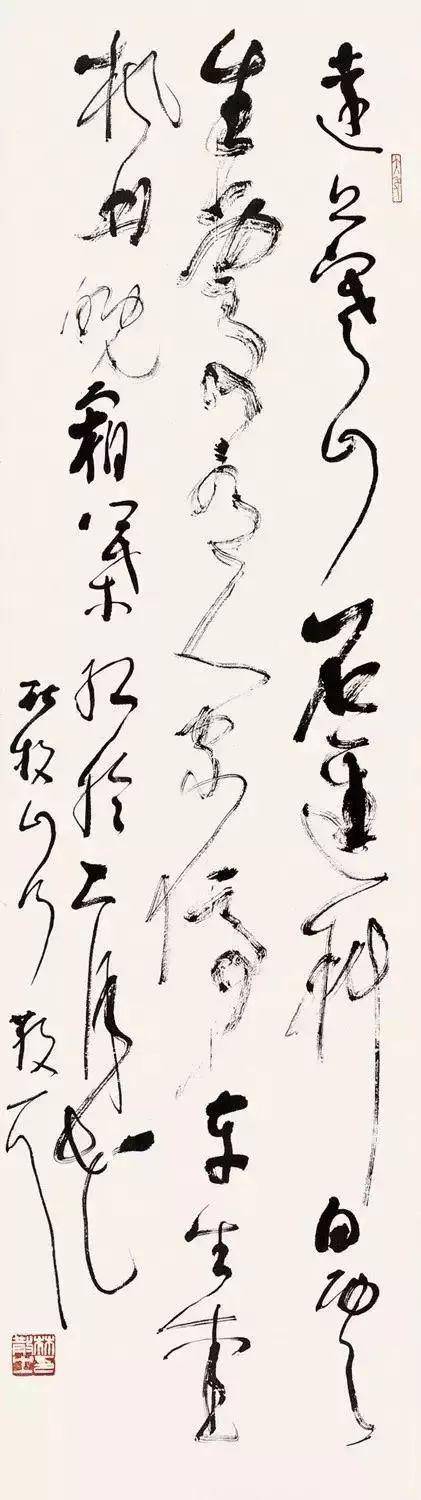 遠上寒山石逕斜白雲
生處有人家停車坐愛
楓林晚霜葉紅於二月花
杜牧山行 散耳
林散之